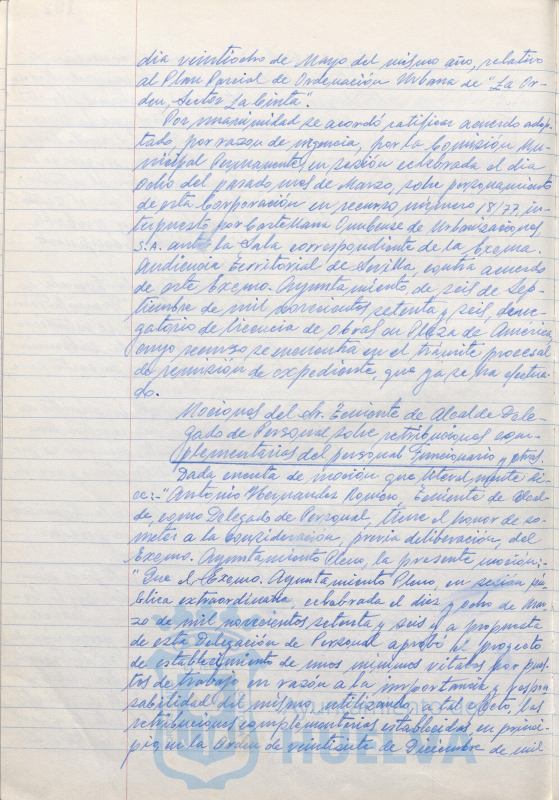 dia veintiocho de Mayo del mismo año, relativo
al Plan Parcial de Ordenación Urbana de "La Or-
den, Sector La Cinta".
Por unanimidad se acordó ratificar acuerdo adop-
tado, por razon de urgencia, por la Comisión Mu-
nicipal Permanente, en sesión celebrada el dia
ocho del pasado mes de Marzo, sobre personamiento
de esta Corporación en recurso número 18/77, in-
terpuesto por Castellana Onubense de Urbanizaciones
S.A. ante la Sala correspondiente de la Excma.
Audiencia Territorial de Sevilla, contra acuerdo
de este Excmo. Ayuntamiento de seis de Sep-
tiembre de mil novecientos setenta y seis, dene-
gatorio de licencia de obras en Plaza de America
cuyo recurso se encuentra en el trámite procesal
de remisión de expediente, que ya se ha efectua-
do.
Mociones del Sr. Teniente de Alcalde Dele-
gado de Personal sobre retribuciones com-
plementarias del personal Funcionario y otros.
Dada cuenta de moción que literalmente di-
ce:- "Antonio Hernandez Romero, Teniente de Alcal-
de, como Delegado de Personal, tiene el honor de so-
meter a la consideración, previa deliberación, del
Excmo. Ayuntamiento Pleno, la presente moción:-
"Que el Excmo. Ayuntamiento Pleno, en sesión pú-
blica extraordinaria, celebrada el diez y ocho de Mar-
zo de mil novecientos setenta y seis y a propuesta
de esta Delegación de Personal aprobó el proyecto
de establecimiento de unos minimos vitales por pues-
tos de trabajo en razón a la importancia y respon-
sabilidad del mismo, utilizando, a tal efecto, las
retribuciones complementarias establecidas, en princi-
pio, en la Orden de veintisiete de Diciembre de mil
HUELVA